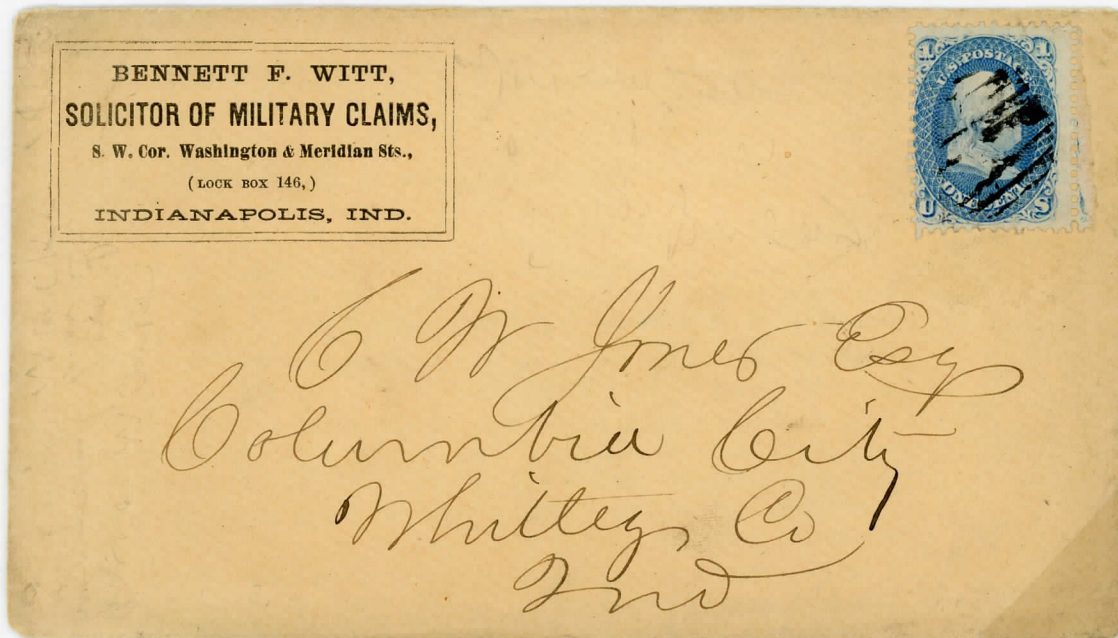 BENNETT F. WITT,
SOLICITOR OF MILITARY CLAIMS,
S. W. Cor. Washington & Meridian Sts.,
(LOCK BOX 146,)
INDIANAPOLIS, IND.
1 1
U.S. POSTAGE
ONE CENT
U S
C W Jones Esq
Columbia City
Whitley Co
Ind